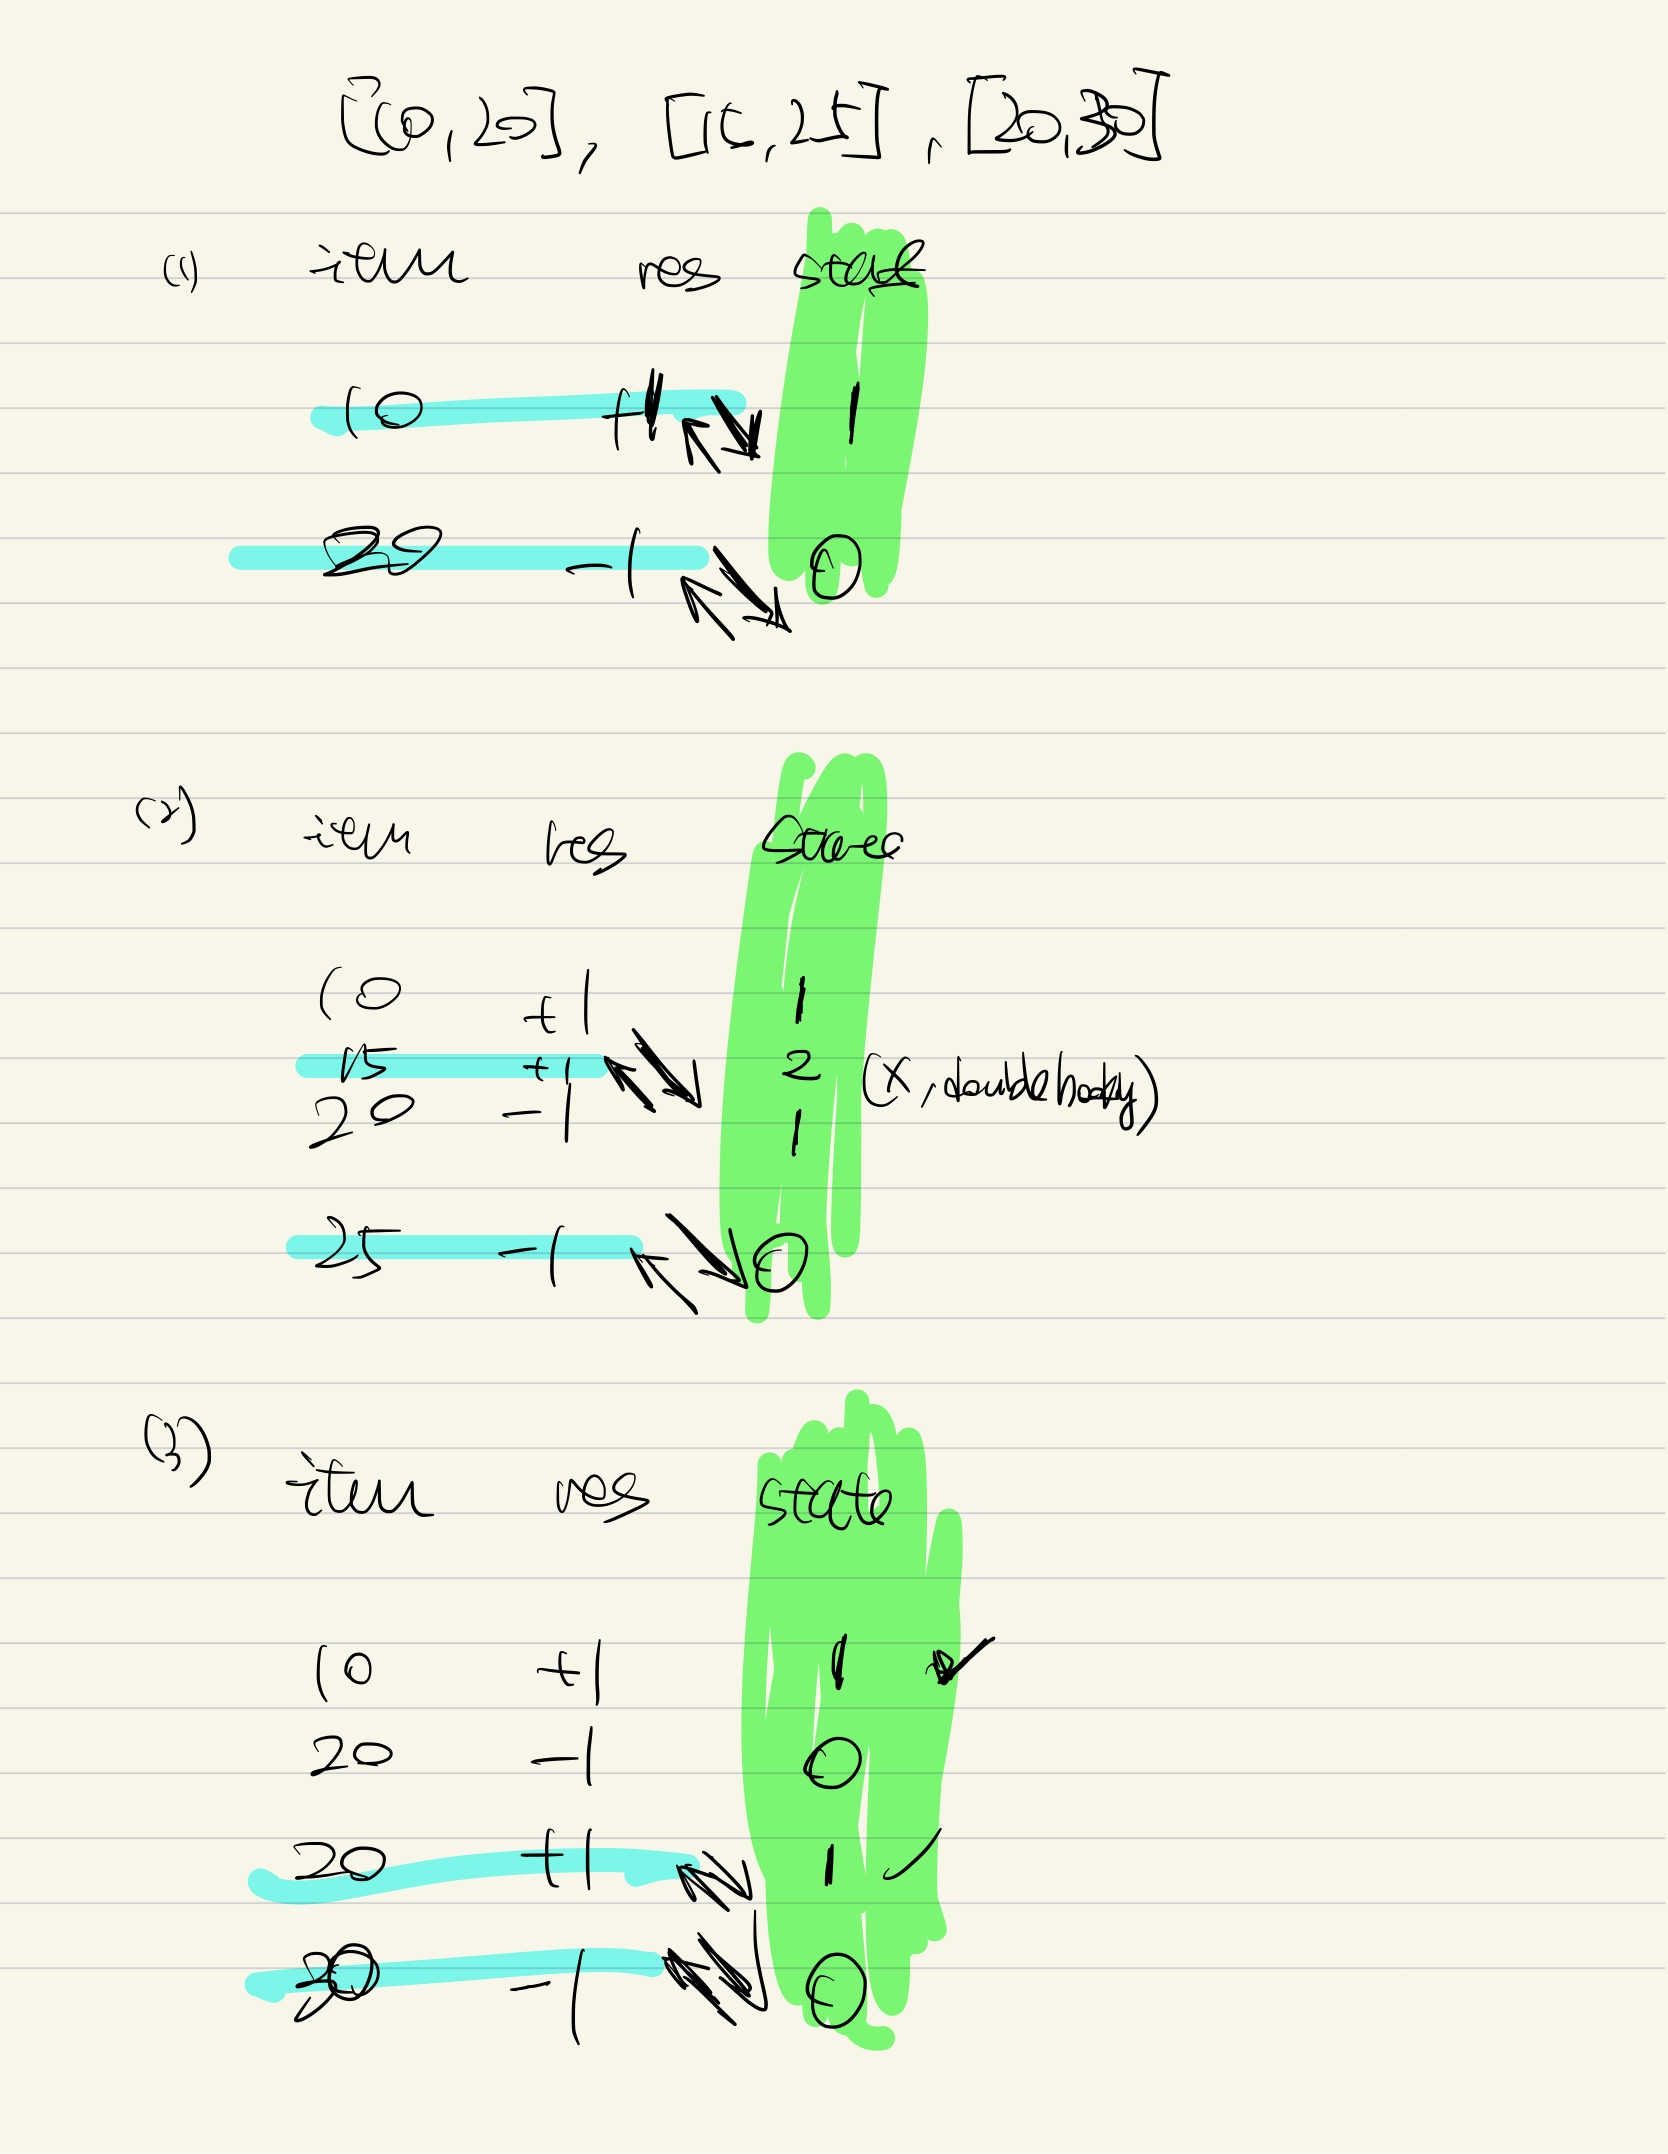 [10,20], [15,25], [20,30]
(1) item res state
10 +1 1
20 -1 0
(2) item res state
10 +1 1
15 +1 2 (X, double body)
20 -1 1
25 -1 0
(3) item res state
10 +1 1 ✓
20 -1 0
20 +1 1 ✓
30 -1 0